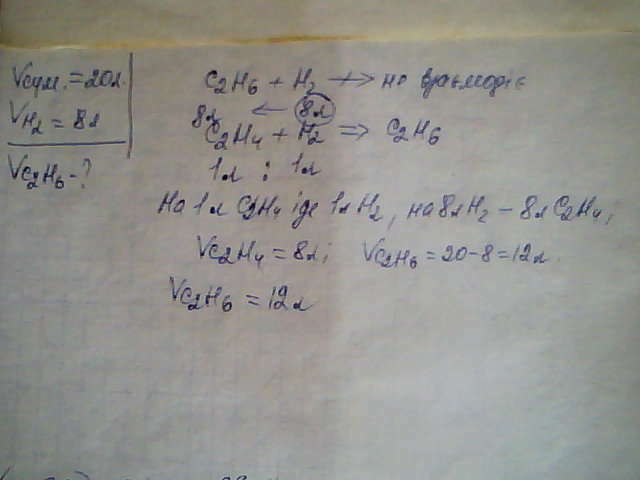 Vсум. = 20л.
VH₂ = 8л
VC₂H₆ - ?
C₂H₆ + H₂ ⇸ не взаємодіє
8л ← 8л
C₂H₄ + H₂ ⇒ C₂H₆
1л : 1л
На 1л C₂H₄ іде 1л H₂, на 8л H₂ – 8л C₂H₄;
VC₂H₄ = 8л; VC₂H₆ = 20-8 = 12л.
VC₂H₆ = 12л